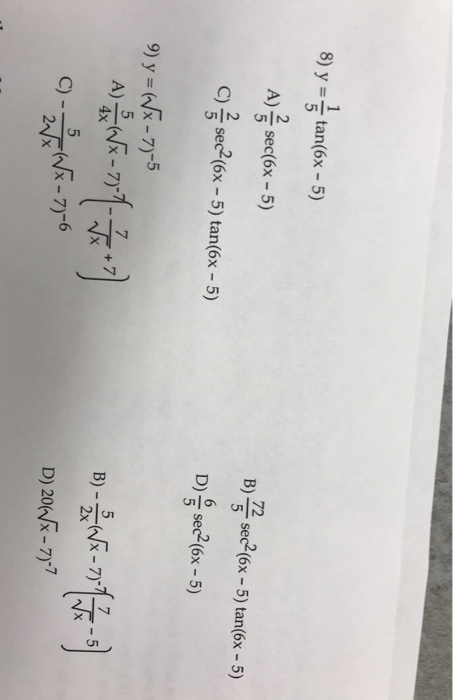 8) y = 1/5 tan(6x - 5)
A) 2/5 sec(6x - 5)
B) 72/5 sec²(6x - 5) tan(6x - 5)
C) 2/5 sec²(6x - 5) tan(6x - 5)
D) 6/5 sec²(6x - 5)
9) y = (√x - 7)⁻⁵
A) 5/4x (√x - 7)⁻⁷(- 7/√x + 7)
B) - 5/2x (√x - 7)⁻⁷(7/√x - 5)
C) - 5/2√x (√x - 7)⁻⁶
D) 20(√x - 7)⁻⁷